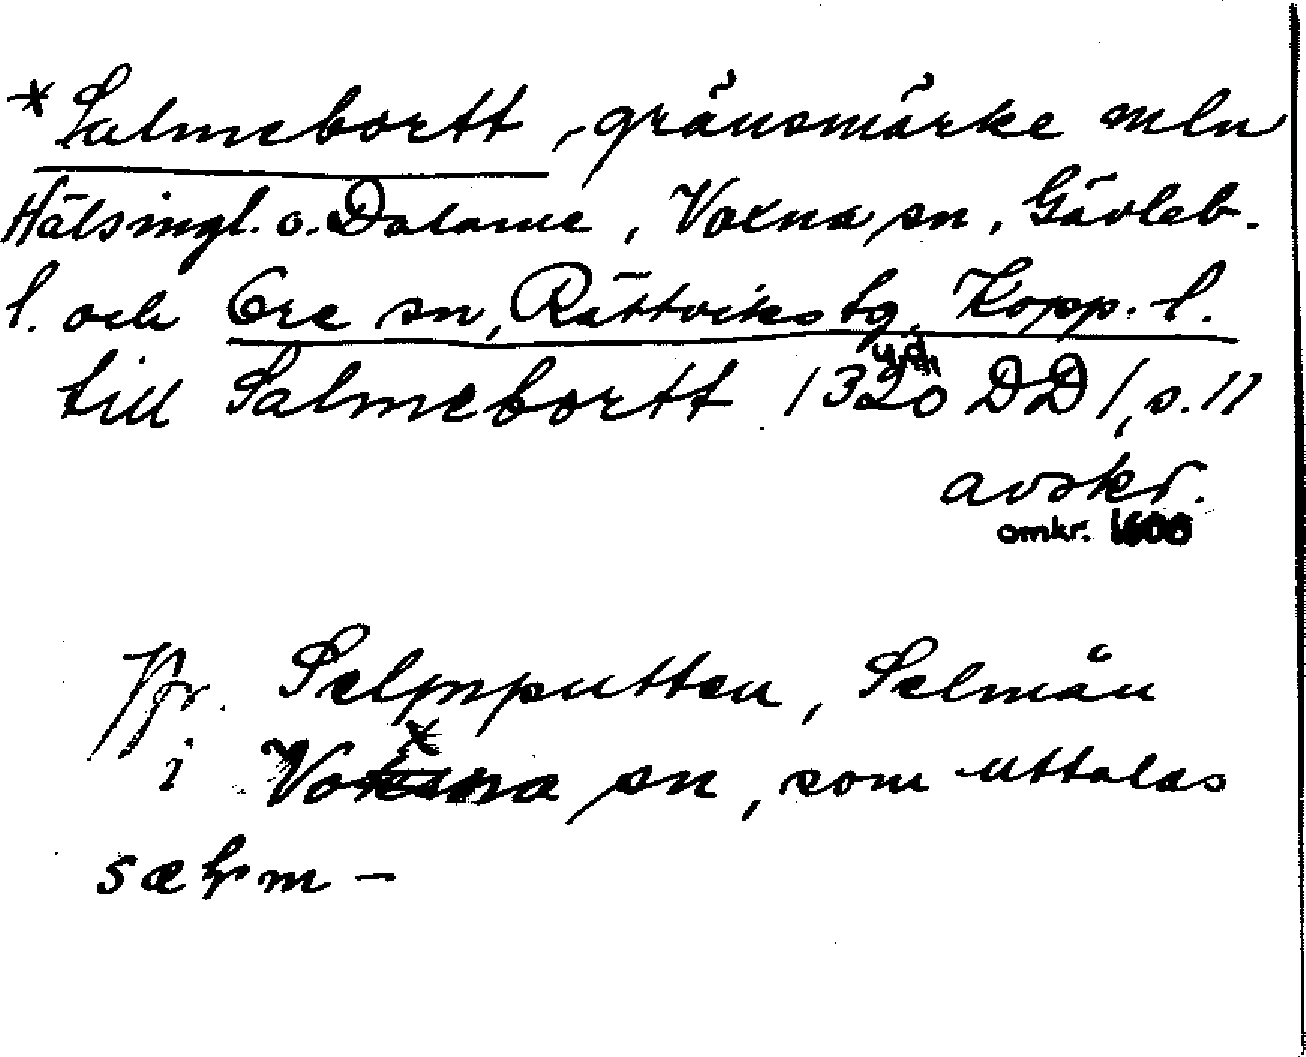 *Salmebortt, gränsmärke mln
Hälsingl. o. Dalarne, Voxna sn, Gävleb.
l. och Ore sn, Rättviks tg, Kopp. l.
till Salmebortt 1320 u.d. DD 1, s. 11
avskr.
omkr. 1600
Jfr. Selmputten, Selmån
i Voxna sn, som uttalas
sælm –